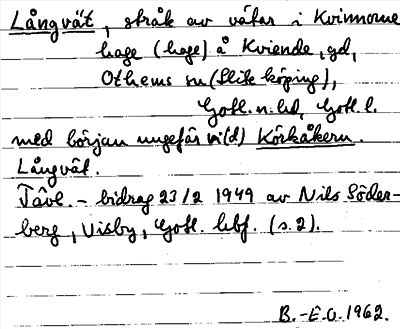 Långvät, stråk av vätar i Kvinnorne
hage (hage) å Kviende, gd,
Othems sn (Slite köping),
Gotl. n. hd, Gotl. l.
med början ungefär vi(d) Körkåkern.
Långvät.
Tävl. - bidrag 23/2 1949 av Nils Söder-
berg, Visby, Gotl. hbf. (s. 2).
B.-E.O. 1962.